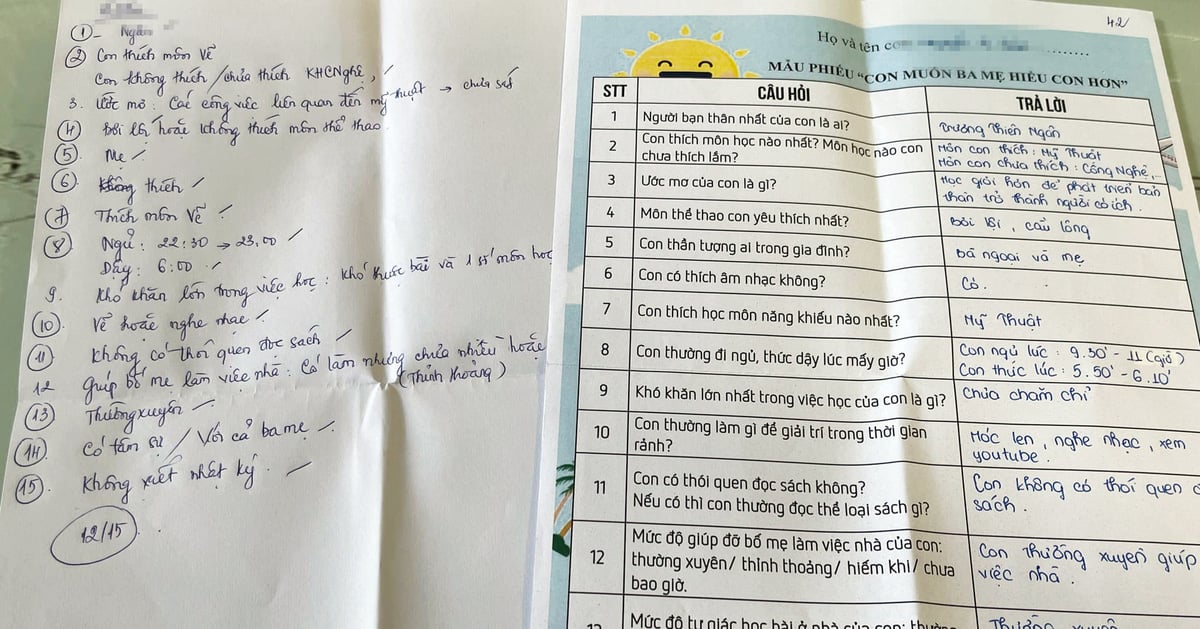 ① - Ngân
② Con thích môn Vẽ
Con không thích / chưa thích KHCNghệ,
3. Ước mơ : Các công việc liên quan đến mỹ thuật → chưa sát
④ Bơi lội hoặc không thích môn thể thao.
⑤ Mẹ
⑥ Không thích
⑦ Thích môn Vẽ
⑧ Ngủ : 22:30 → 23,00
Dậy : 6:00
9. Khó khăn lớn trong việc học : Khó thuộc bài và 1 số môn học
⑩. Vẽ hoặc nghe nhạc
⑪ Không có thói quen đọc sách
12 Giúp bố mẹ làm việc nhà : Có làm nhưng chưa nhiều hoặc
(Thỉnh thoảng)
⑬ Thường xuyên
⑭. Có tâm sự / Với cả ba mẹ
⑮. Không viết nhật ký.
12/15
42
Họ và tên con
MẪU PHIẾU "CON MUỐN BA MẸ HIỂU CON HƠN"
STT CÂU HỎI TRẢ LỜI
1 Người bạn thân nhất của con là ai? Trương Thiên Ngân
2 Con thích môn học nào nhất? Môn học nào con Môn con thích : Mỹ Thuật
chưa thích lắm? Môn con chưa thích : Công Nghệ,..
3 Ước mơ của con là gì? Học giỏi hơn để phát triển bản
thân trở thành người có ích.
4 Môn thể thao con yêu thích nhất? Bơi lội, cầu lông
5 Con thần tượng ai trong gia đình? bà ngoại và mẹ
6 Con có thích âm nhạc không? Có.
7 Con thích học môn năng khiếu nào nhất? Mỹ Thuật
8 Con thường đi ngủ, thức dậy lúc mấy giờ? Con ngủ lúc : 9.50' - 11 (giờ)
Con thức lúc : 5.50' - 6.10'
9 Khó khăn lớn nhất trong việc học của con là gì? Chưa chăm chỉ
10 Con thường làm gì để giải trí trong thời gian Móc len, nghe nhạc, xem
rảnh? youtube.
11 Con có thói quen đọc sách không? Con không có thói quen
Nếu có thì con thường đọc thể loại sách gì? sách.
12 Mức độ giúp đỡ bố mẹ làm việc nhà của con: Con thường xuyên giúp
thường xuyên/ thỉnh thoảng/ hiếm khi/ chưa việc nhà.
bao giờ.
Mức độ tự giác học bài ở nhà của con: Thường xuyên